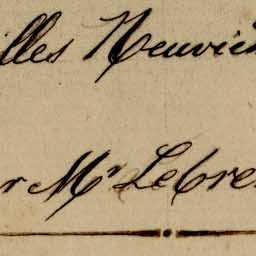 illes Neuviè
r Mr Lebre